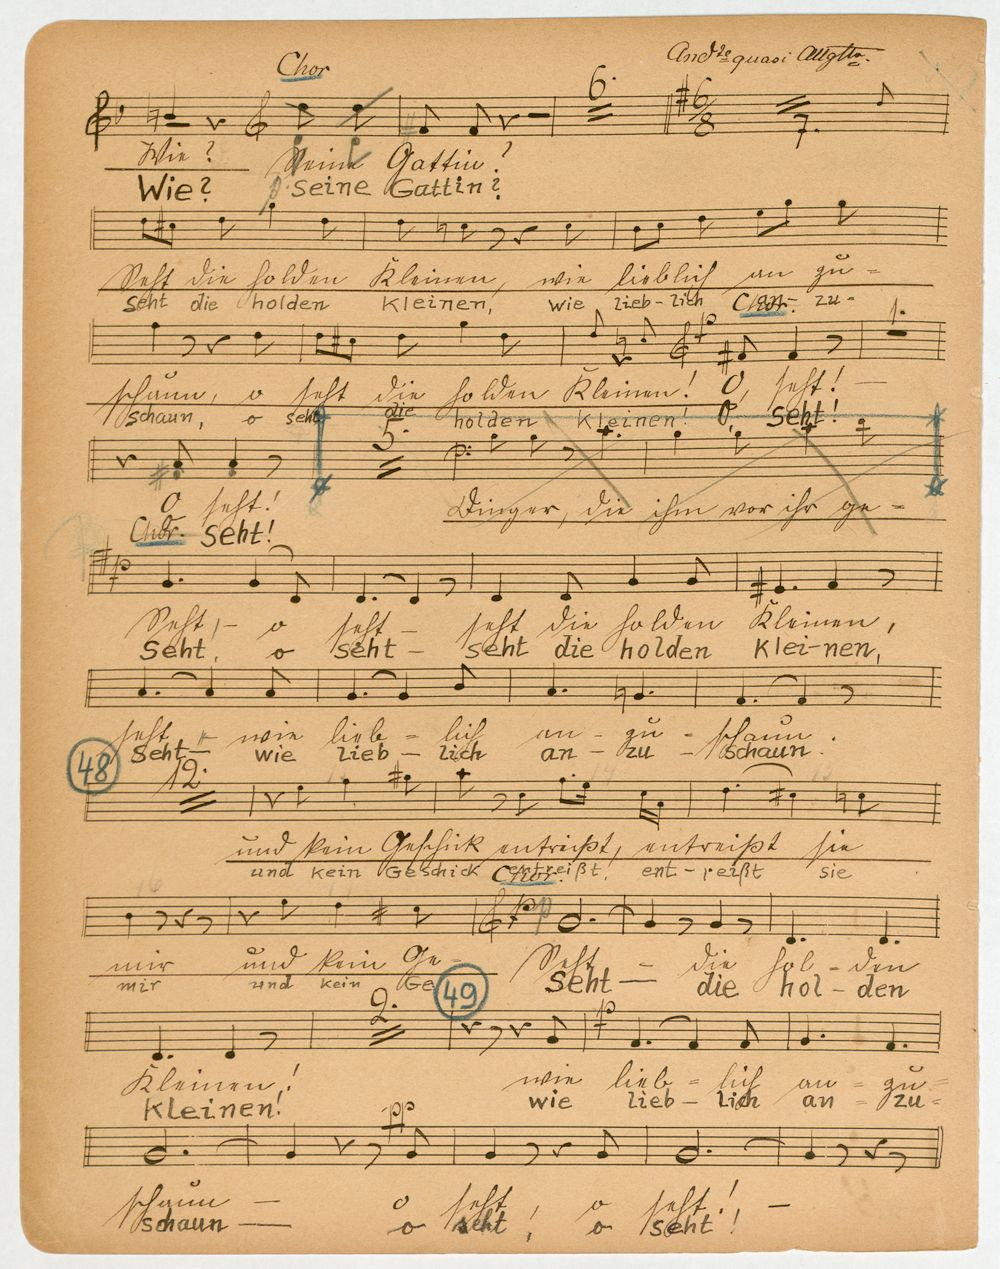 Chor
And.te quasi Allgtto.
6.
6/8
7.
Wie? Seine Gattin?
Wie? seine Gattin?
Seht die holden Kleinen, wie lieblich an zu=
Seht die holden Kleinen, wie lieb-lich an- zu-
Chor.
1.
schaun, o seht die holden Kleinen! O, seht! —
schaun, o seht die holden Kleinen! O, Seht!
5.
O seht! Dinger, die ihm vor ihr ge-
Chor. Seht!
p
Seht, - o seht - seht die holden Kleinen,
Seht, o seht - seht die holden Klei-nen,
seht - wie lieb = lich an - zu - schaun.
Seht - wie lieb - lich an - zu - schaun.
48
12.
und kein Geschick entreißt, entreißt sie
und kein Geschick entreißt, ent-reißt sie
Chor.
p
mir und kein Ge- Seht - die hol - den
mir und kein Ge Seht — die hol - den
49
2.
p
Kleinen! wie lieb = lich an = zu=
Kleinen! wie lieb - lich an = zu=
pp
schaun — o seht, o seht! —
schaun — o seht, o seht!